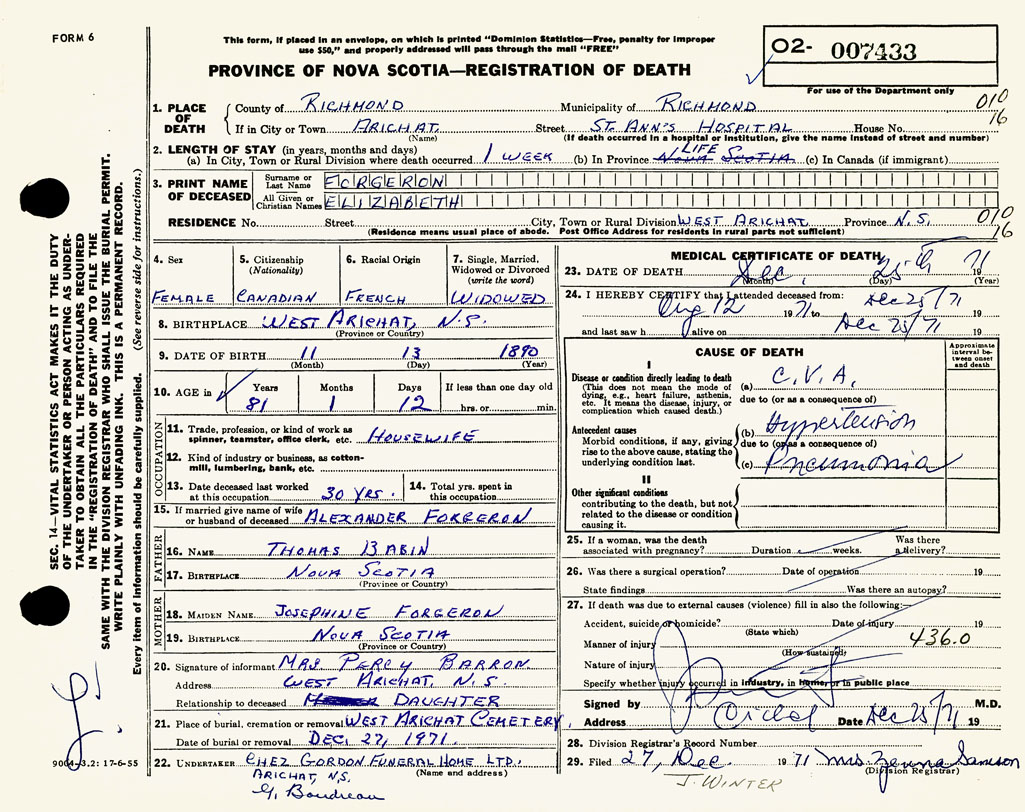 FORM 6
This form, if placed in an envelope, on which is printed "Dominion Statistics—Free, penalty for improper
use $50," and properly addressed will pass through the mail "FREE"
PROVINCE OF NOVA SCOTIA—REGISTRATION OF DEATH
02- 007433
For use of the Department only
1. PLACE OF DEATH
County of RICHMOND Municipality of RICHMOND 010
If in City or Town ARICHAT Street ST. ANN'S HOSPITAL House No. 16
(Name) (If death occurred in a hospital or institution, give the name instead of street and number)
2. LENGTH OF STAY (in years, months and days)
(a) In City, Town or Rural Division where death occurred 1 WEEK (b) In Province LIFE NOVA SCOTIA (c) In Canada (if immigrant)
3. PRINT NAME OF DECEASED
Surname or Last Name FORGERON
All Given or Christian Names ELIZABETH
RESIDENCE No. Street City, Town or Rural Division WEST ARICHAT Province N.S. 010
(Residence means usual place of abode. Post Office Address for residents in rural parts not sufficient) 16
4. Sex
FEMALE
5. Citizenship (Nationality)
CANADIAN
6. Racial Origin
FRENCH
7. Single, Married, Widowed or Divorced (write the word)
WIDOWED
8. BIRTHPLACE WEST ARICHAT, N.S.
(Province or Country)
9. DATE OF BIRTH 11 13 1890
(Month) (Day) (Year)
10. AGE in Years Months Days If less than one day old
81 1 12 hrs. or min.
OCCUPATION
11. Trade, profession, or kind of work as
spinner, teamster, office clerk, etc. HOUSEWIFE
12. Kind of industry or business, as cotton-
mill, lumbering, bank, etc.
13. Date deceased last worked at this occupation 30 YRS.
14. Total yrs. spent in this occupation
15. If married give name of wife
or husband of deceased ALEXANDER FORGERON
FATHER
16. NAME THOMAS BABIN
17. BIRTHPLACE NOVA SCOTIA
(Province or Country)
MOTHER
18. MAIDEN NAME JOSEPHINE FORGERON
19. BIRTHPLACE NOVA SCOTIA
(Province or Country)
20. Signature of informant MRS PERCY BARRON
Address WEST ARICHAT, N.S.
Relationship to deceased DAUGHTER
21. Place of burial, cremation or removal WEST ARICHAT CEMETERY,
Date of burial or removal DEC. 27, 1971.
22. UNDERTAKER CHEZ GORDON FUNERAL HOME LTD.
(Name and address)
ARICHAT, N.S.
G. Boudreau
MEDICAL CERTIFICATE OF DEATH
23. DATE OF DEATH Dec. 25th 1971
(Month) (Day) (Year)
24. I HEREBY CERTIFY that I attended deceased from:
Aug 12 1971 to Dec 25/71
and last saw h alive on Dec 25/71 19
CAUSE OF DEATH
Approximate interval between onset and death
I
Disease or condition directly leading to death
(This does not mean the mode of
dying, e.g., heart failure, asthenia,
etc. It means the disease, injury, or
complication which caused death.)
(a) C.V.A.
due to (or as a consequence of)
Antecedent causes
Morbid conditions, if any, giving
rise to the above cause, stating the
underlying condition last.
(b) Hypertension
due to (or as a consequence of)
(c) Pneumonia
II
Other significant conditions
contributing to the death, but not
related to the disease or condition
causing it.
25. If a woman, was the death Was there
associated with pregnancy? Duration weeks. a delivery?
26. Was there a surgical operation? Date of operation 19
State findings Was there an autopsy?
27. If death was due to external causes (violence) fill in also the following:
Accident, suicide or homicide? Date of injury 19
(State which)
Manner of injury 436.0
(How sustained)
Nature of injury
Specify whether injury occurred in industry, in home, or in public place
Signed by M.D.
Address Date Dec 25/71 19
28. Division Registrar's Record Number
29. Filed 27, Dec. 1971 Mrs. Samson
(Division Registrar)
J. WINTER
SEC. 14—VITAL STATISTICS ACT MAKES IT THE DUTY
OF THE UNDERTAKER OR PERSON ACTING AS UNDER-
TAKER TO OBTAIN ALL THE PARTICULARS REQUIRED
IN THE "REGISTRATION OF DEATH" AND TO FILE THE
SAME WITH THE DIVISION REGISTRAR WHO SHALL ISSUE THE BURIAL PERMIT.
WRITE PLAINLY WITH UNFADING INK. THIS IS A PERMANENT RECORD.
Every item of information should be carefully supplied. (See reverse side for instructions.)
17-6-55